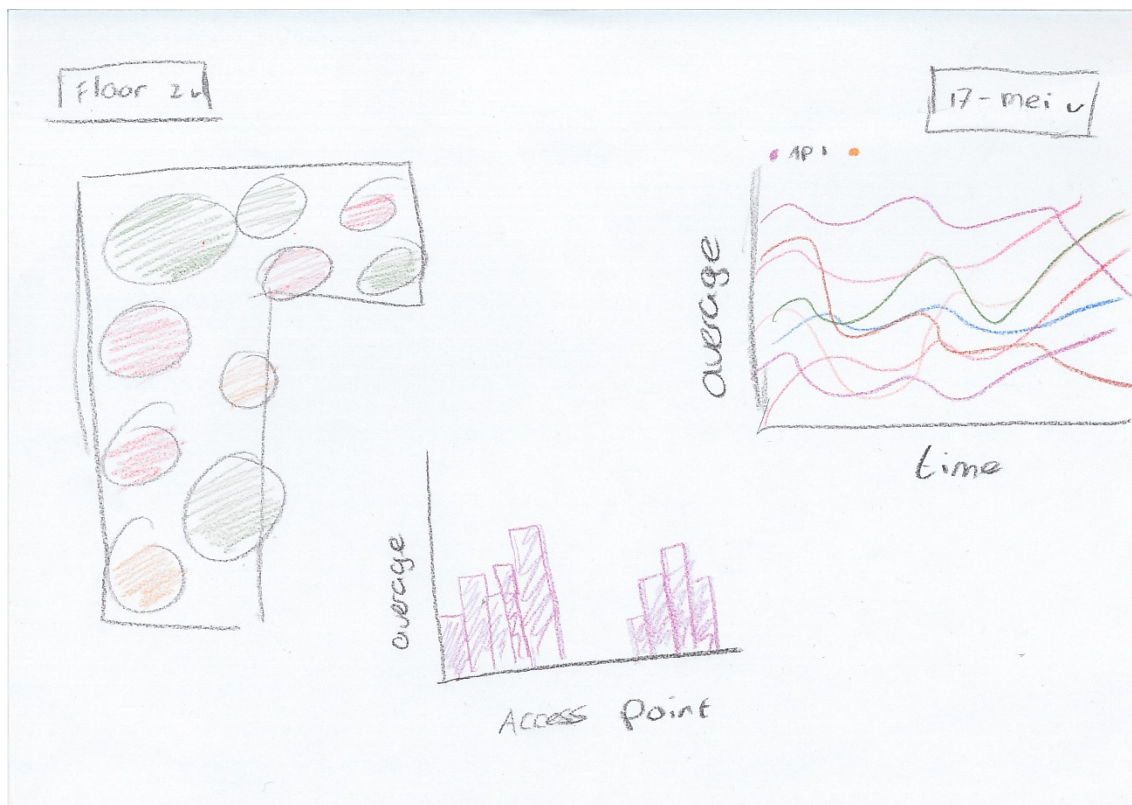 Floor 2
17-mei
AP 1
average
time
average
Access Point